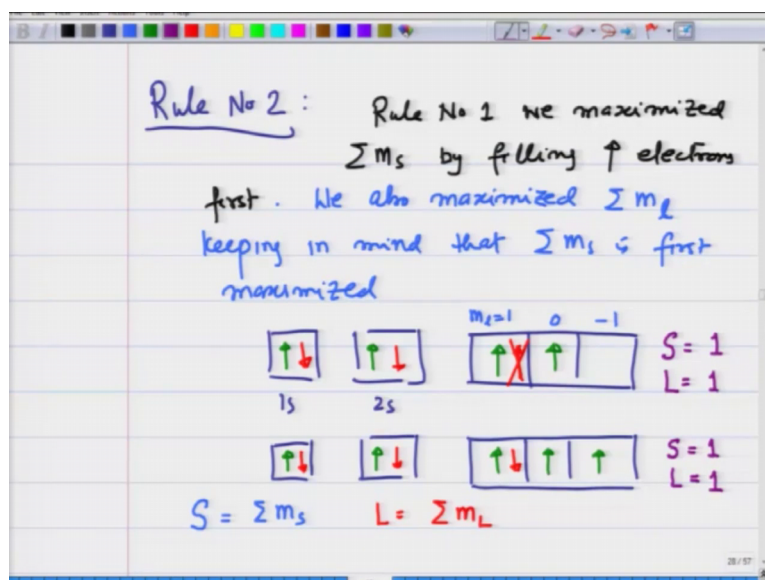 Rule No 2 : Rule No 1 we maximized
Σ ms by filling ↑ electrons
first. We also maximized Σ ml
keeping in mind that Σ ms is first
maximized
ml=1 0 -1
↑↓ ↑↓ ↑↓ ↑ S = 1
L = 1
1s 2s
↑↓ ↑↓ ↑↓ ↑ ↑ S = 1
L = 1
S = Σ ms L = Σ mL
28/57